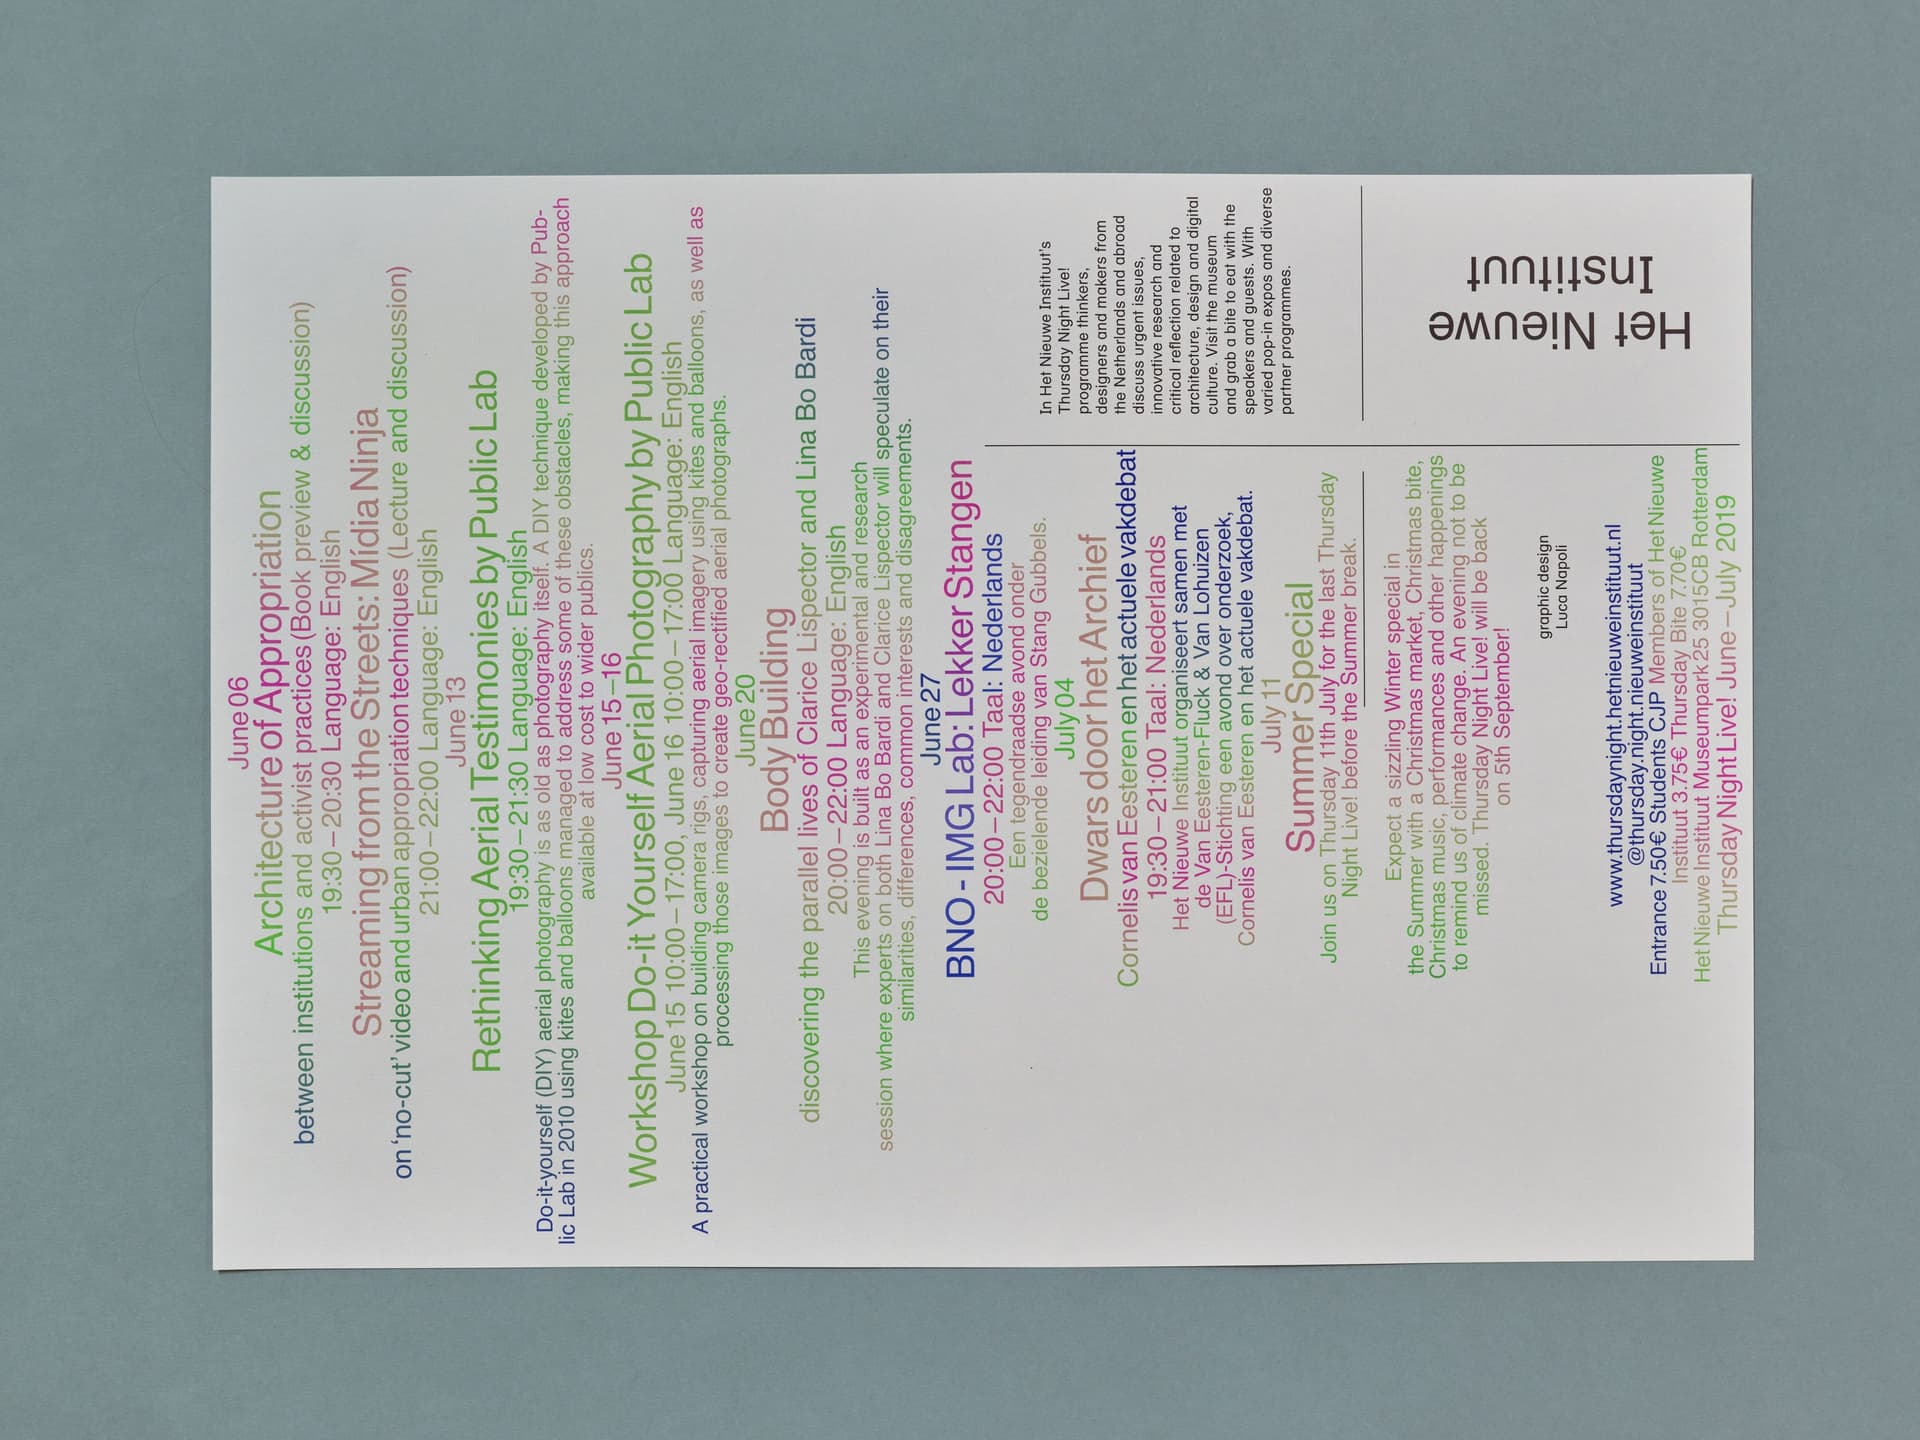 June 06
Architecture of Appropriation
between institutions and activist practices (Book preview & discussion)
19:30 – 20:30 Language: English
Streaming from the Streets: Mídia Ninja
on ‘no-cut’ video and urban appropriation techniques (Lecture and discussion)
21:00 – 22:00 Language: English
June 13
Rethinking Aerial Testimonies by Public Lab
19:30 – 21:30 Language: English
Do-it-yourself (DIY) aerial photography is as old as photography itself. A DIY technique developed by Pub-
lic Lab in 2010 using kites and balloons managed to address some of these obstacles, making this approach
available at low cost to wider publics.
June 15 – 16
Workshop Do-it Yourself Aerial Photography by Public Lab
June 15 10:00 – 17:00, June 16 10:00 – 17:00 Language: English
A practical workshop on building camera rigs, capturing aerial imagery using kites and balloons, as well as
processing those images to create geo-rectified aerial photographs.
June 20
Body Building
discovering the parallel lives of Clarice Lispector and Lina Bo Bardi
20:00 – 22:00 Language: English
This evening is built as an experimental and research
session where experts on both Lina Bo Bardi and Clarice Lispector will speculate on their
similarities, differences, common interests and disagreements.
June 27
BNO - IMG Lab: Lekker Stangen
20:00 – 22:00 Taal: Nederlands
Een tegendraadse avond onder
de bezielende leiding van Stang Gubbels.
July 04
Dwars door het Archief
Cornelis van Eesteren en het actuele vakdebat
19:30 – 21:00 Taal: Nederlands
Het Nieuwe Instituut organiseert samen met
de Van Eesteren-Fluck & Van Lohuizen
(EFL)-Stichting een avond over onderzoek,
Cornelis van Eesteren en het actuele vakdebat.
July 11
Summer Special
Join us on Thursday 11th July for the last Thursday
Night Live! before the Summer break.
Expect a sizzling Winter special in
the Summer with a Christmas market, Christmas bite,
Christmas music, performances and other happenings
to remind us of climate change. An evening not to be
missed. Thursday Night Live! will be back
on 5th September!
graphic design
Luca Napoli
www.thursdaynight.hetnieuweinstituut.nl
@thursday.night.nieuweinstituut
Entrance 7.50€ Students CJP Members of Het Nieuwe
Instituut 3.75€ Thursday Bite 7.70€
Het Nieuwe Instituut Museumpark 25 3015CB Rotterdam
Thursday Night Live! June – July 2019
In Het Nieuwe Instituut’s
Thursday Night Live!
programme thinkers,
designers and makers from
the Netherlands and abroad
discuss urgent issues,
innovative research and
critical reflection related to
architecture, design and digital
culture. Visit the museum
and grab a bite to eat with the
speakers and guests. With
varied pop-in expos and diverse
partner programmes.
Het Nieuwe
Instituut